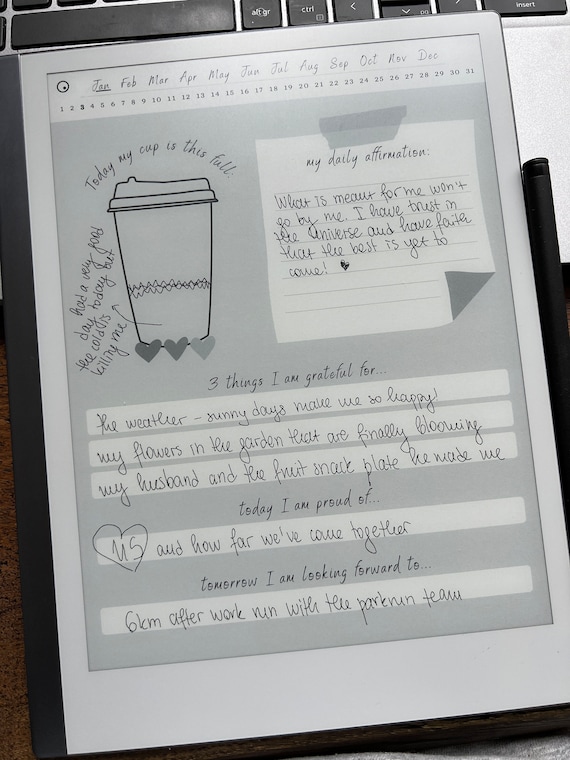 alt gr
ctrl
insert
Jan Feb Mar Apr May Jun Jul Aug Sep Oct Nov Dec
1 2 3 4 5 6 7 8 9 10 11 12 13 14 15 16 17 18 19 20 21 22 23 24 25 26 27 28 29 30 31
Today my cup is this full:
had a very good
day today but
the cold is
killing me
my daily affirmation:
What is meant for me won't
go by me. I have trust in
the Universe and have faith
that the best is yet to
come!
3 things I am grateful for...
the weather - sunny days make me so happy!
my flowers in the garden that are finally blooming
my husband and the fruit snack plate he made me
today I am proud of...
US and how far we've come together
tomorrow I am looking forward to...
6km after work run with the parkrun team